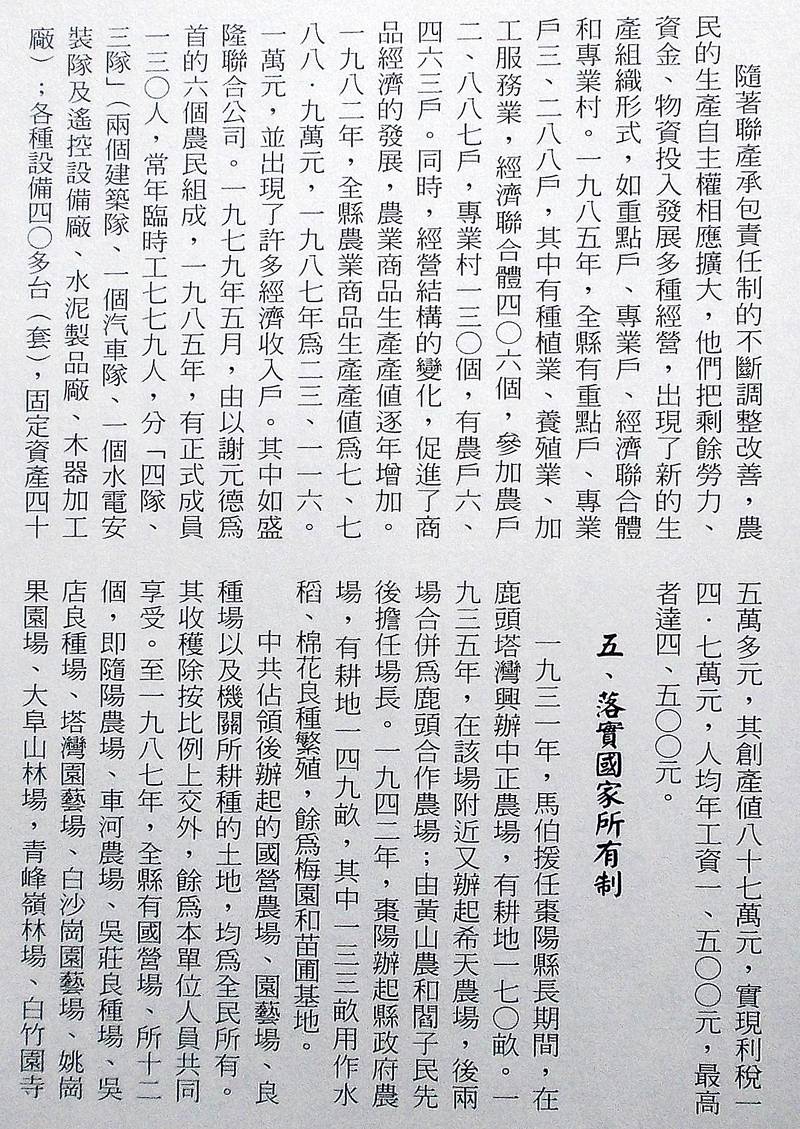 隨著聯產承包責任制的不斷調整改善，農
民的生產自主權相應擴大，他們把剩餘勞力、
資金、物資投入發展多種經營，出現了新的生
產組織形式，如重點戶、專業戶、經濟聯合體
和專業村。一九八五年，全縣有重點戶、專業
戶三、二八八戶，其中有種植業、養殖業、加
工服務業，經濟聯合體四〇六個，參加農戶
二、八八七戶，專業村一三〇個，有農戶六、
四六三戶。同時，經營結構的變化，促進了商
品經濟的發展，農業商品生產產值逐年增加。
一九八二年，全縣農業商品生產產值爲七、七
八八．九萬元，一九八七年爲二三、一一六。
一萬元，並出現了許多經濟收入戶。其中如盛
隆聯合公司。一九七九年五月，由以謝元德爲
首的六個農民組成，一九八五年，有正式成員
一三〇人，常年臨時工七七九人，分「四隊、
三隊」（兩個建築隊、一個汽車隊、一個水電安
裝隊及遙控設備廠、水泥製品廠、木器加工
廠）；各種設備四〇多台（套），固定資產四十
五萬多元，其創產值八十七萬元，實現利稅一
四．七萬元，人均年工資一、五〇〇元，最高
者達四、五〇〇元。
五、落實國家所有制
一九三一年，馬伯援任棗陽縣長期間，在
鹿頭塔灣興辦中正農場，有耕地一七〇畝。一
九三五年，在該場附近又辦起希天農場，後兩
場合併爲鹿頭合作農場；由黃山農和閻子民先
後擔任場長。一九四二年，棗陽辦起縣政府農
場，有耕地一四九畝，其中一三三畝用作水
稻、棉花良種繁殖，餘爲梅園和苗圃基地。
中共佔領後辦起的國營農場、園藝場、良
種場以及機關所耕種的土地，均爲全民所有。
其收穫除按比例上交外，餘爲本單位人員共同
享受。至一九八七年，全縣有國營場、所十二
個，即隨陽農場、車河農場、吳莊良種場、吳
店良種場、塔灣園藝場、白沙崗園藝場、姚崗
果園場、大阜山林場，青峰嶺林場、白竹園寺